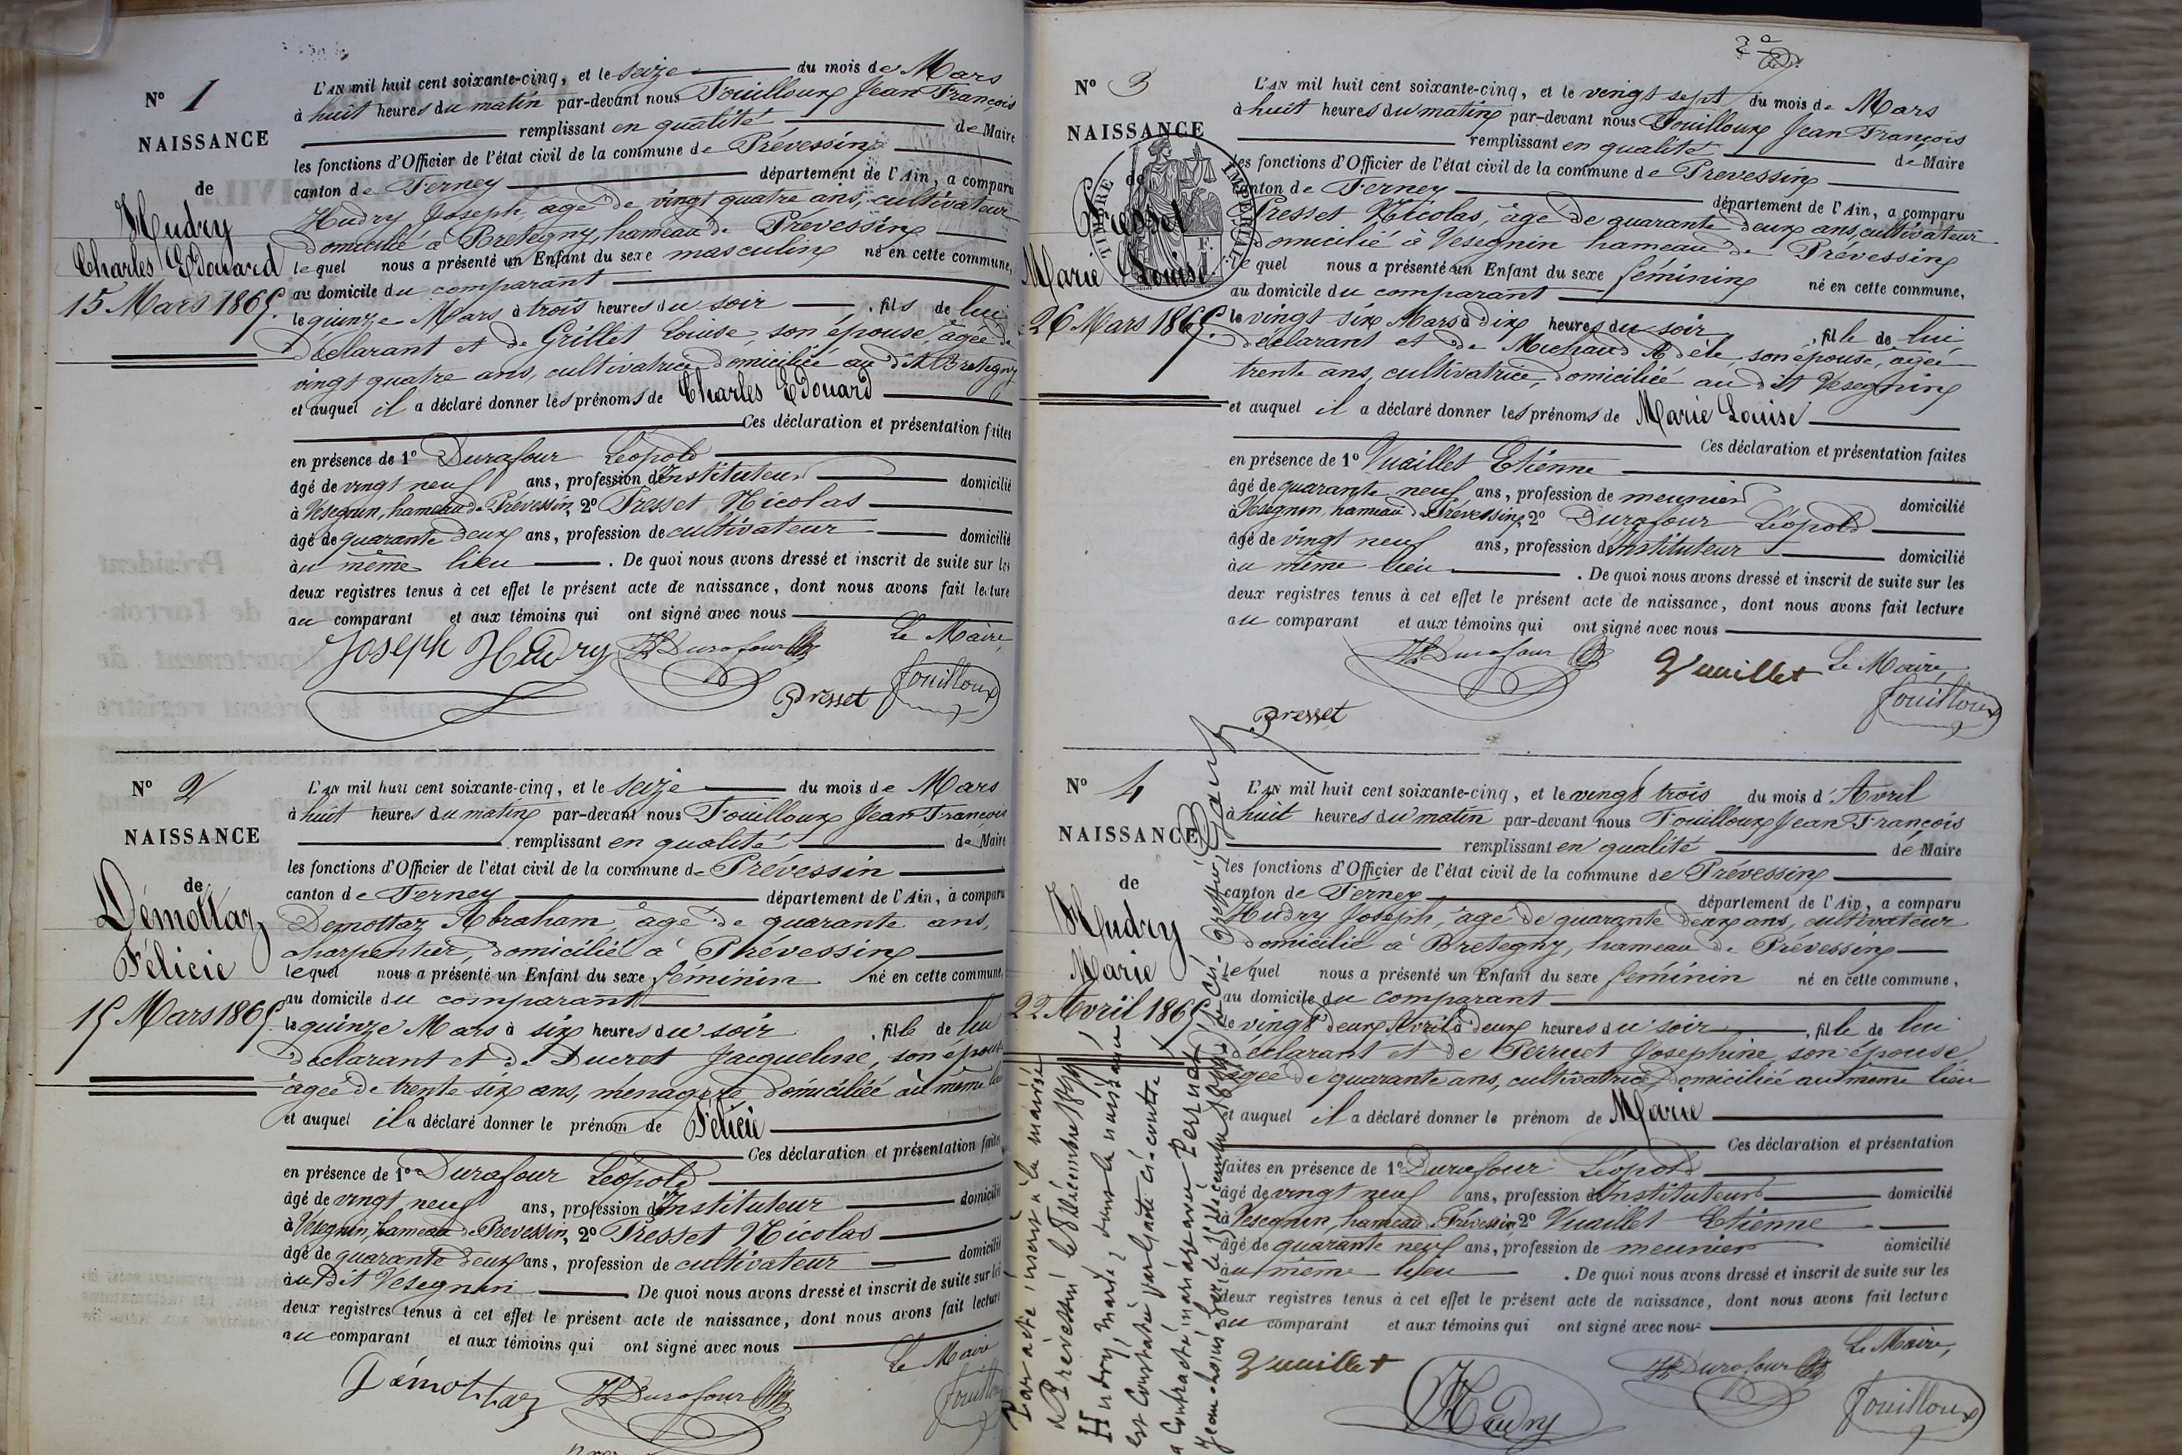 N° 1
NAISSANCE
de
Hudry
Charles Edouard
15 Mars 1865.
L'AN mil huit cent soixante-cinq, et le seize du mois de Mars
à huit heures du matin par-devant nous Fouilloux Jean François
remplissant en qualité de Maire
les fonctions d'Officier de l'état civil de la commune de Prévessin
canton de Ferney département de l'Ain, a comparu
Hudry Joseph, agé de vingt quatre ans, cultivateur
domicilié à Bretegny, hameau de Prévessin
lequel nous a présenté un Enfant du sexe masculin né en cette commune,
au domicile du comparant
le quinze Mars à trois heures du soir, fils de lui
déclarant et de Grillet Louise, son épouse, âgée de
vingt quatre ans, cultivatrice, domiciliée au dit Bretegny
et auquel il a déclaré donner les prénoms de Charles Edouard
Ces déclaration et présentation faites
en présence de 1° Durafour Léopold
âgé de vingt neuf ans, profession d'Instituteur domicilié
à Vesegnin, hameau de Prévessin, 2° Presset Nicolas
âgé de quarante deux ans, profession de cultivateur domicilié
au même lieu. De quoi nous avons dressé et inscrit de suite sur les
deux registres tenus à cet effet le présent acte de naissance, dont nous avons fait lecture
au comparant et aux témoins qui ont signé avec nous
Joseph Hudry Durafour Le Maire,
Presset Fouilloux
N° 2
NAISSANCE
de
Démottaz
Félicie
15 Mars 1865.
L'AN mil huit cent soixante-cinq, et le seize du mois de Mars
à huit heures du matin par-devant nous Fouilloux Jean François
remplissant en qualité de Maire
les fonctions d'Officier de l'état civil de la commune de Prévessin
canton de Ferney département de l'Ain, a comparu
Demottaz Abraham, agé de quarante ans,
charpentier, domicilié à Prévessin
lequel nous a présenté un Enfant du sexe féminin né en cette commune,
au domicile du comparant
le quinze Mars à six heures du soir, fille de lui
déclarant et de Ducret Jacqueline, son épouse
âgée de trente six ans, ménagère, domiciliée au même lieu
et auquel il a déclaré donner le prénom de Félicie
Ces déclaration et présentation faites
en présence de 1° Durafour Léopold
âgé de vingt neuf ans, profession d'Instituteur domicilié
à Vesegnin, hameau de Prévessin, 2° Presset Nicolas
âgé de quarante deux ans, profession de cultivateur domicilié
au dit Vesegnin De quoi nous avons dressé et inscrit de suite sur les
deux registres tenus à cet effet le présent acte de naissance, dont nous avons fait lecture
au comparant et aux témoins qui ont signé avec nous
Le Maire
Démottaz Durafour Fouilloux
N° 3
NAISSANCE
de
Presset
Marie Louise
26 Mars 1865.
TIMBRE IMPERIAL
L'AN mil huit cent soixante-cinq, et le vingt sept du mois de Mars
à huit heures du matin par-devant nous Fouilloux Jean François
remplissant en qualité de Maire
les fonctions d'Officier de l'état civil de la commune de Prevessin
canton de Ferney département de l'Ain, a comparu
Presset Nicolas, âgé de quarante deux ans, cultivateur
domicilié à Vesegnin hameau de Prévessin
lequel nous a présenté un Enfant du sexe féminin né en cette commune,
au domicile du comparant
le vingt six Mars à dix heures du soir, fille de lui
déclarant et de Michaud Adèle, son épouse, âgée
trente ans, cultivatrice, domiciliée au dit Vesegnin
et auquel il a déclaré donner les prénoms de Marie Louise
Ces déclaration et présentation faites
en présence de 1° Vuaillet Etienne
âgé de quarante neuf ans, profession de meunier domicilié
à Vesegnin, hameau de Prévessin, 2° Durafour Léopold
âgé de vingt neuf ans, profession d'Instituteur domicilié
au même lieu. De quoi nous avons dressé et inscrit de suite sur les
deux registres tenus à cet effet le présent acte de naissance, dont nous avons fait lecture
au comparant et aux témoins qui ont signé avec nous
Durafour Vuaillet Le Maire,
Presset Fouilloux
N° 4
NAISSANCE
de
Hudry
Marie
22 Avril 1865
L'AN mil huit cent soixante-cinq, et le vingt trois du mois d'Avril
à huit heures du matin par-devant nous Fouilloux Jean François
remplissant en qualité de Maire
les fonctions d'Officier de l'état civil de la commune de Prévessin
canton de Ferney département de l'Ain, a comparu
Hudry Joseph, âgé de quarante deux ans, cultivateur
domicilié à Bretegny, hameau de Prévessin
lequel nous a présenté un Enfant du sexe féminin né en cette commune,
au domicile du comparant
le vingt deux Avril à deux heures du soir, fille de lui
déclarant et de Perruet Josephine, son épouse,
agée de quarante ans, cultivatrice, domiciliée au même lieu
et auquel il a déclaré donner le prénom de Marie
Ces déclaration et présentation
faites en présence de 1° Durafour Léopold
âgé de vingt neuf ans, profession d'Instituteur domicilié
à Vesegnin, hameau Prévessin, 2° Vuaillet Etienne
âgé de quarante neuf ans, profession de meunier domicilié
au même lieu. De quoi nous avons dressé et inscrit de suite sur les
deux registres tenus à cet effet le présent acte de naissance, dont nous avons fait lecture
au comparant et aux témoins qui ont signé avec nous
Le Maire,
Vuaillet Hudry Durafour Fouilloux
Par acte inscrit à la mairie
de Prévessin le 8 décembre
Hudry Marie, dont la naissance
est constatée par l'acte ci-contre
a contracté mariage avec Perruet